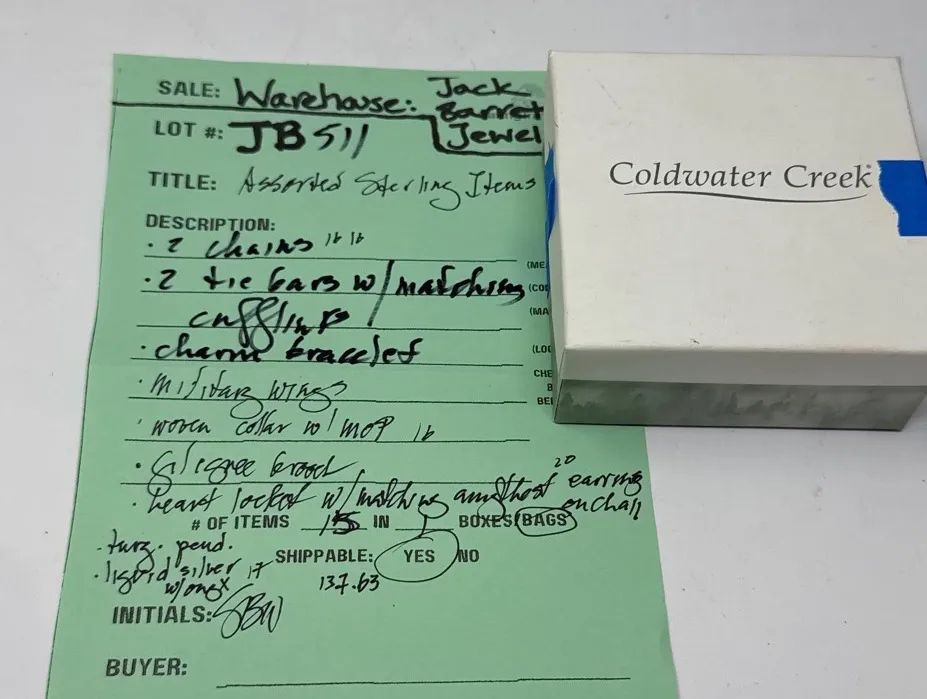 SALE: Warehouse: Jack
Barret
Jewel
LOT #: JB511
TITLE: Assorted Sterling Items
DESCRIPTION:
· 2 chains 16 16
· 2 tie bars w/matching
cufflinks
· charm bracelet
· military wings
· woven collar w/ MOP 16
· filigree brooch
· heart locket w/matching amythost earring
20
on chain
# OF ITEMS 15 IN 1 BOXES/BAGS
· turq. pend.
SHIPPABLE: YES NO
· liquid silver 17
w/onyx
137.63
INITIALS: SBW
BUYER:
(ME
(CO
(MA
(LOC
CHE
B
BEL
Coldwater Creek